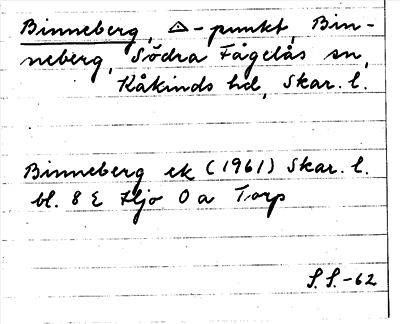 Binneberg, △-punkt, Bin-
neberg, Södra Fågelås sn,
Kåkinds hd, Skar. l.
Binneberg ek (1961) Skar. l.
bl. 8 E Hjo 0 a Torp
S.S.-62